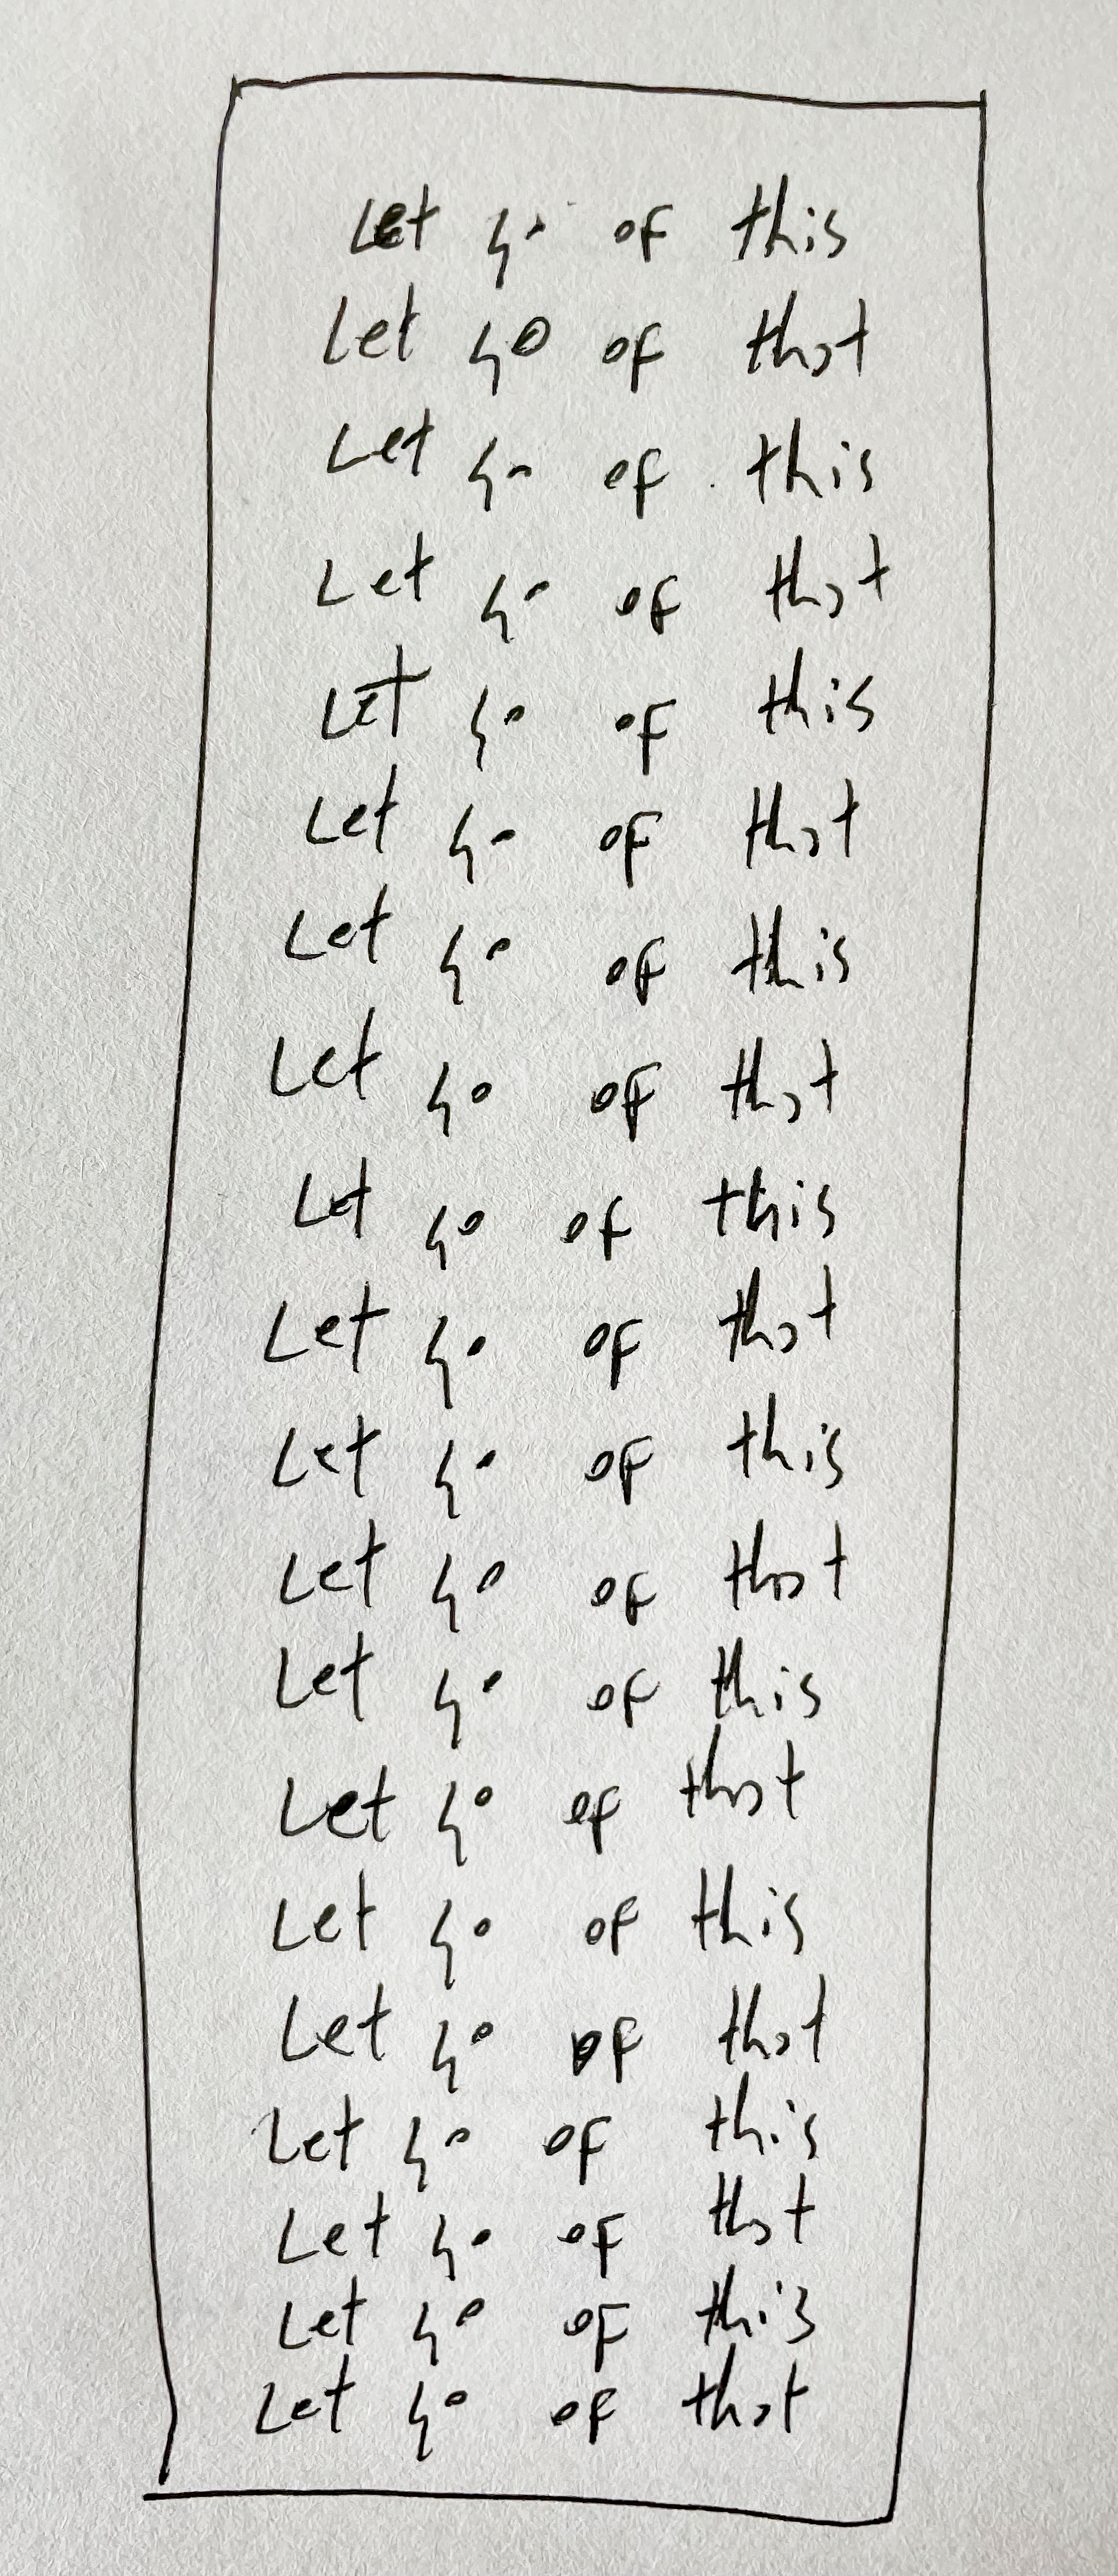 Let go of this
Let go of that
Let go of this
Let go of that
Let go of this
Let go of that
Let go of this
Let go of that
Let go of this
Let go of that
Let go of this
Let go of that
Let go of this
Let go of that
Let go of this
Let go of that
Let go of this
Let go of that
Let go of this
Let go of that